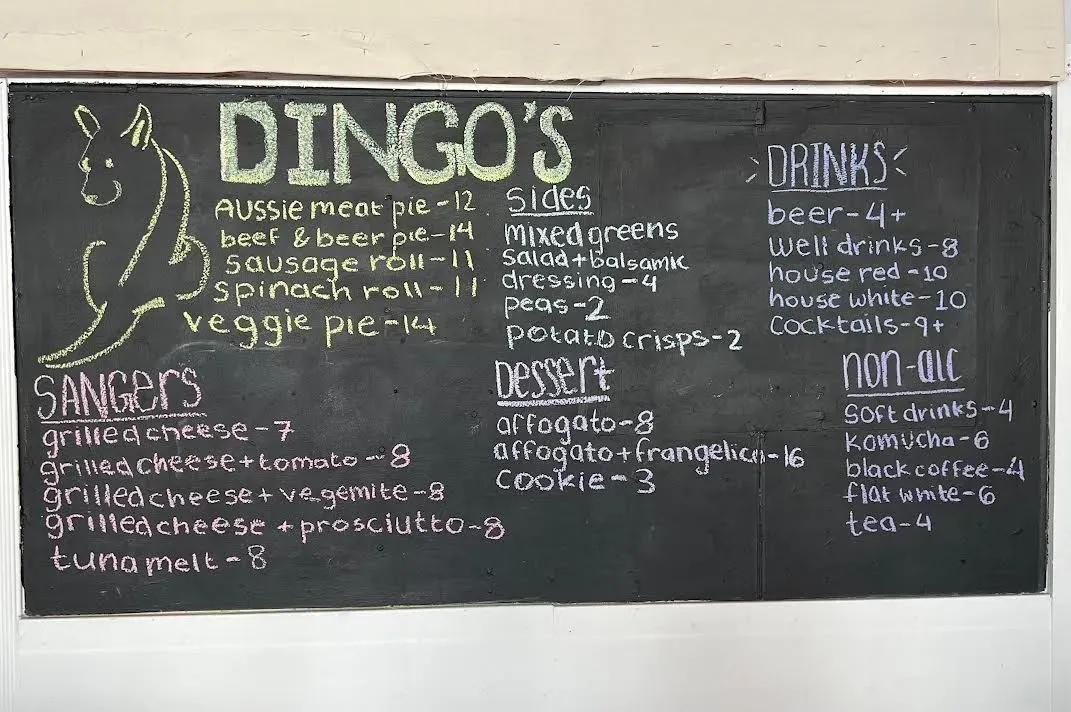 DINGO'S
Aussie meat pie - 12
beef & beer pie - 14
sausage roll - 11
spinach roll - 11
veggie pie - 14
SANGERS
grilled cheese - 7
grilled cheese + tomato - 8
grilled cheese + vegemite - 8
grilled cheese + prosciutto - 8
tuna melt - 8
Sides
mixed greens
salad + balsamic
dressing - 4
peas - 2
potato crisps - 2
Dessert
affogato - 8
affogato + frangelico - 16
cookie - 3
>DRINKS<
beer - 4+
well drinks - 8
house red - 10
house white - 10
cocktails - 9+
non-alc
soft drinks - 4
komucha - 6
black coffee - 4
flat white - 6
tea - 4